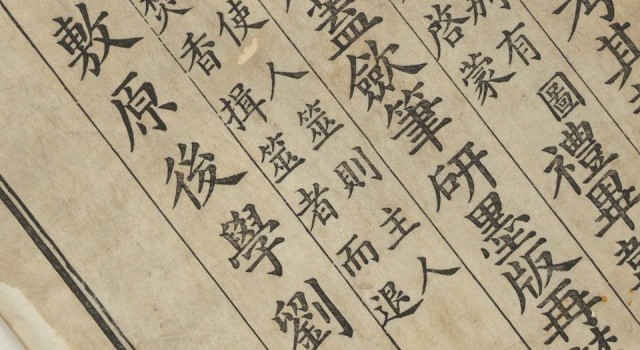 考其
有圖
啓蒙
禮畢
蓋斂筆研墨版再
使人筮則主人
焚香揖筮者而退
敷原後學劉